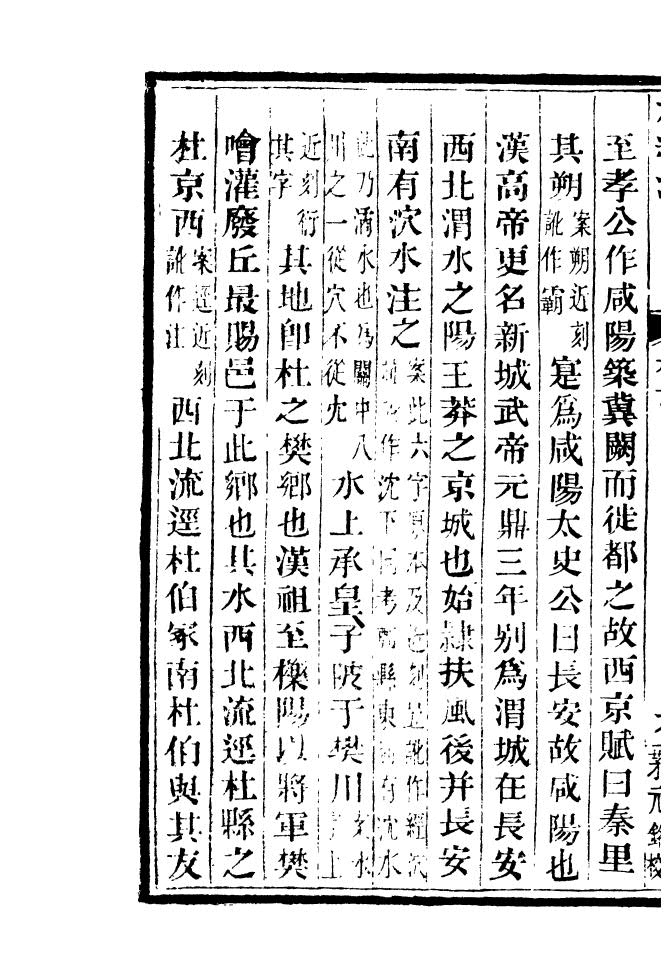 至孝公作咸陽築冀闕而徙都之故西京賦曰秦里
其朔案朔近刻訛作霸寔爲咸陽太史公曰長安故咸陽也
漢高帝更名新城武帝元鼎三年别爲渭城在長安
西北渭水之陽王莽之京城也始隸扶風後并長安
南有沇水注之案此六字原本及近刻並訛作經沇訛作沈下同考縣東南有沈水
此乃潏水也爲關中八川之一從穴不從冘水上承皇子陂于樊川水上
近刻衍其字其地即杜之樊鄉也漢祖至櫟陽以將軍樊
噲灌廢丘最賜邑于此鄉也其水西北流逕杜縣之
杜京西案逕近刻訛作注西北流逕杜伯冢南杜伯與其友